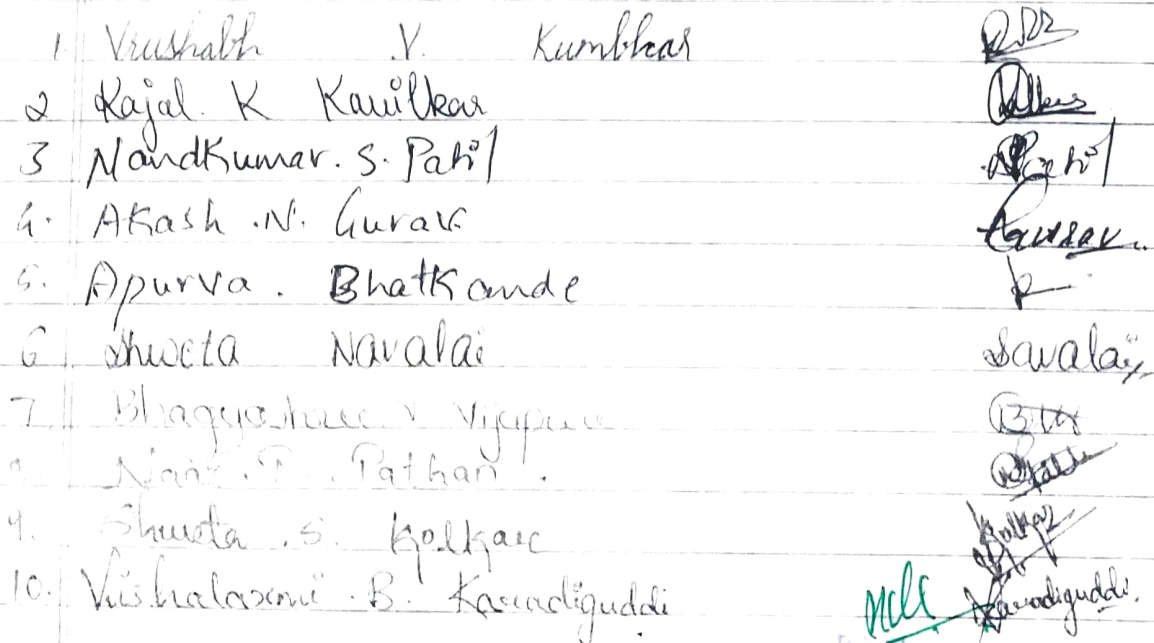 1. Vrushabh .V. Kumbhar
2 Kajal. K Kavilkar
3 Nandkumar. S. Patil N Patil
4. Akash .N. Gurav Gaurav..
5. Apurva . Bhatkande
6 Shweta Navalai Savalai
7. Bhagyashree V Vijapure
Pathan .
9. Shweta .S. Kolkar Kolkar
10. Vishalaxmi .B. Karadiguddi Karadiguddi.